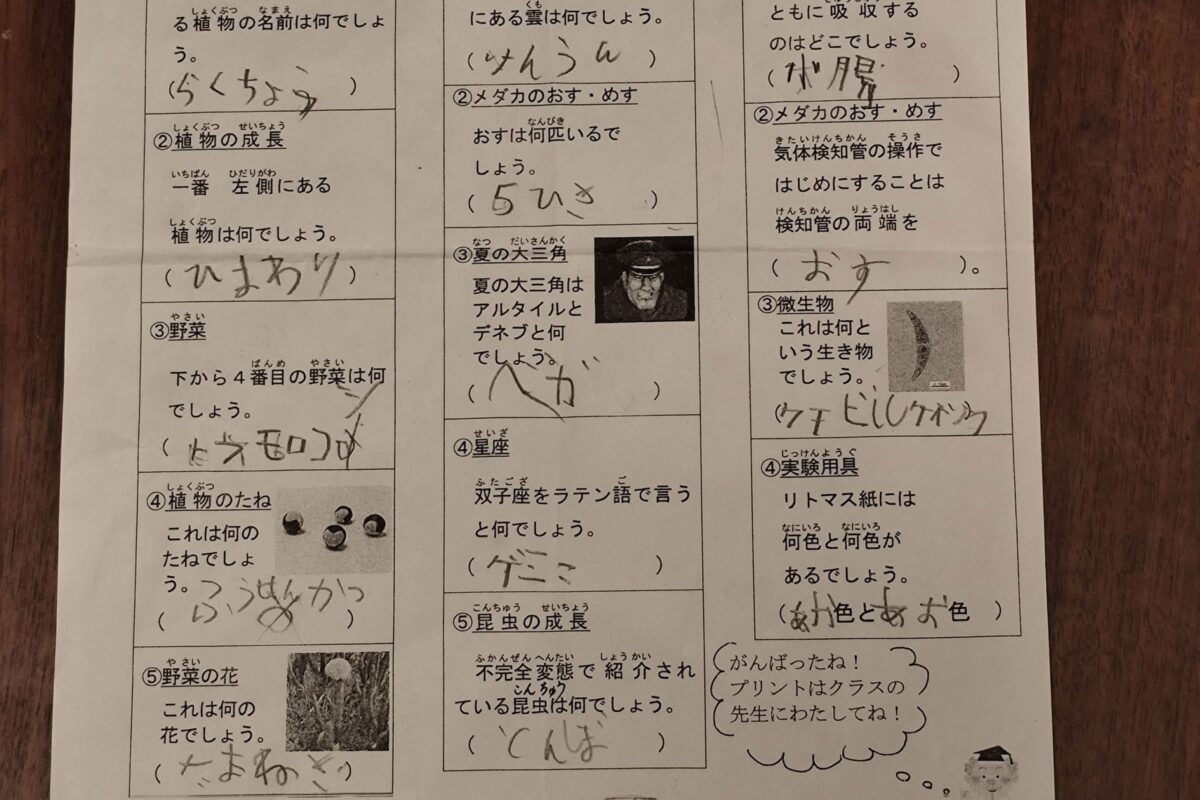 る植物の名前は何でしょ
う。
(らくちょう)
②植物の成長
一番 左側にある
植物は何でしょう。
(ひまわり)
③野菜
下から4番目の野菜は何
でしょう。
④植物のたね
これは何の
たねでしょ
う。
⑤野菜の花
これは何の
花でしょう。
(たまねぎ)
にある雲は何でしょう。
(けんうん)
②メダカのおす・めす
おすは何匹いるで
しょう。
(5ひき)
③夏の大三角
夏の大三角は
アルタイルと
デネブと何
でしょう。
(ベガ)
④星座
双子座をラテン語で言う
と何でしょう。
(ゲミニ)
⑤昆虫の成長
不完全変態で紹介され
ている昆虫は何でしょう。
(とんぼ)
ともに吸収する
のはどこでしょう。
②メダカのおす・めす
気体検知管の操作で
はじめにすることは
検知管の両端を
(おす)。
③微生物
これは何と
いう生き物
でしょう。
④実験用具
リトマス紙には
何色と何色が
あるでしょう。
(あか色とあお色)
がんばったね！
プリントはクラスの
先生にわたしてね！